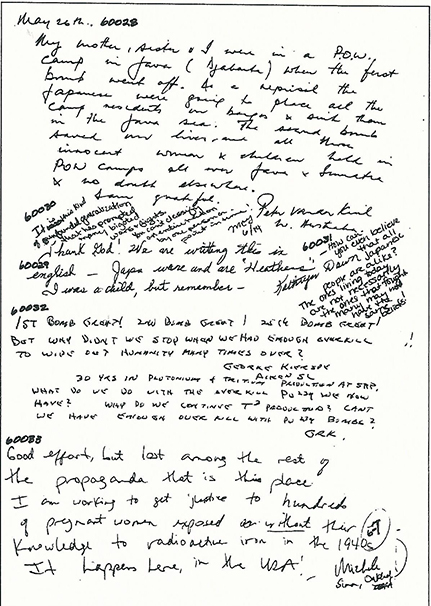 May 26th.. 60028
My mother, sister & I were in a P.O.W.
camp in Java (Djakarta) when the first
bomb went off. As a reprisal the
Japanese were going to place all the
camp residents on barges & sink them
in the Java sea. The second bomb
saved our lives and all those
innocent women & children held in
POW camps all over Java & Sumatra
& no doubt elsewhere.
I am grateful.
W. Australia
60030
It is this kind
of generalization
that has prompted
many bigoted
60029
Thank God! We are writing this in
english – Japs were and are "Heathens"
I was a child, but remember –
60031
– How can
you even believe
that all
Japanese
people are alike?
The ones living today
are not necessarily
the ones that fought
many may not
hold the
same beliefs
60032
1ST BOMB GREAT! 2ND BOMB GREAT! 25TH BOMB GREAT!
BUT WHY DIDN'T WE STOP WHEN WE HAD ENOUGH OVERKILL
TO WIPE OUT HUMANITY MANY TIMES OVER?
GEORGE
AIKEN SC
30 YRS IN PLUTONIUM & TRITIUM PRODUCTION AT SRP.
WHAT DO WE DO WITH THE OVERKILL PU239 WE NOW
HAVE? WHY DO WE CONTINUE T³ PRODUCTION? CANT
WE HAVE ENOUGH OVER KILL WITH PU BOMBS?
GRK.
60033
Good effort, but lost among the rest of
the propaganda that is this place.
I am working to get justice to hundreds
of pregnant women exposed without their
knowledge to radioactive iron in the 1940s
It happens here, in the USA!